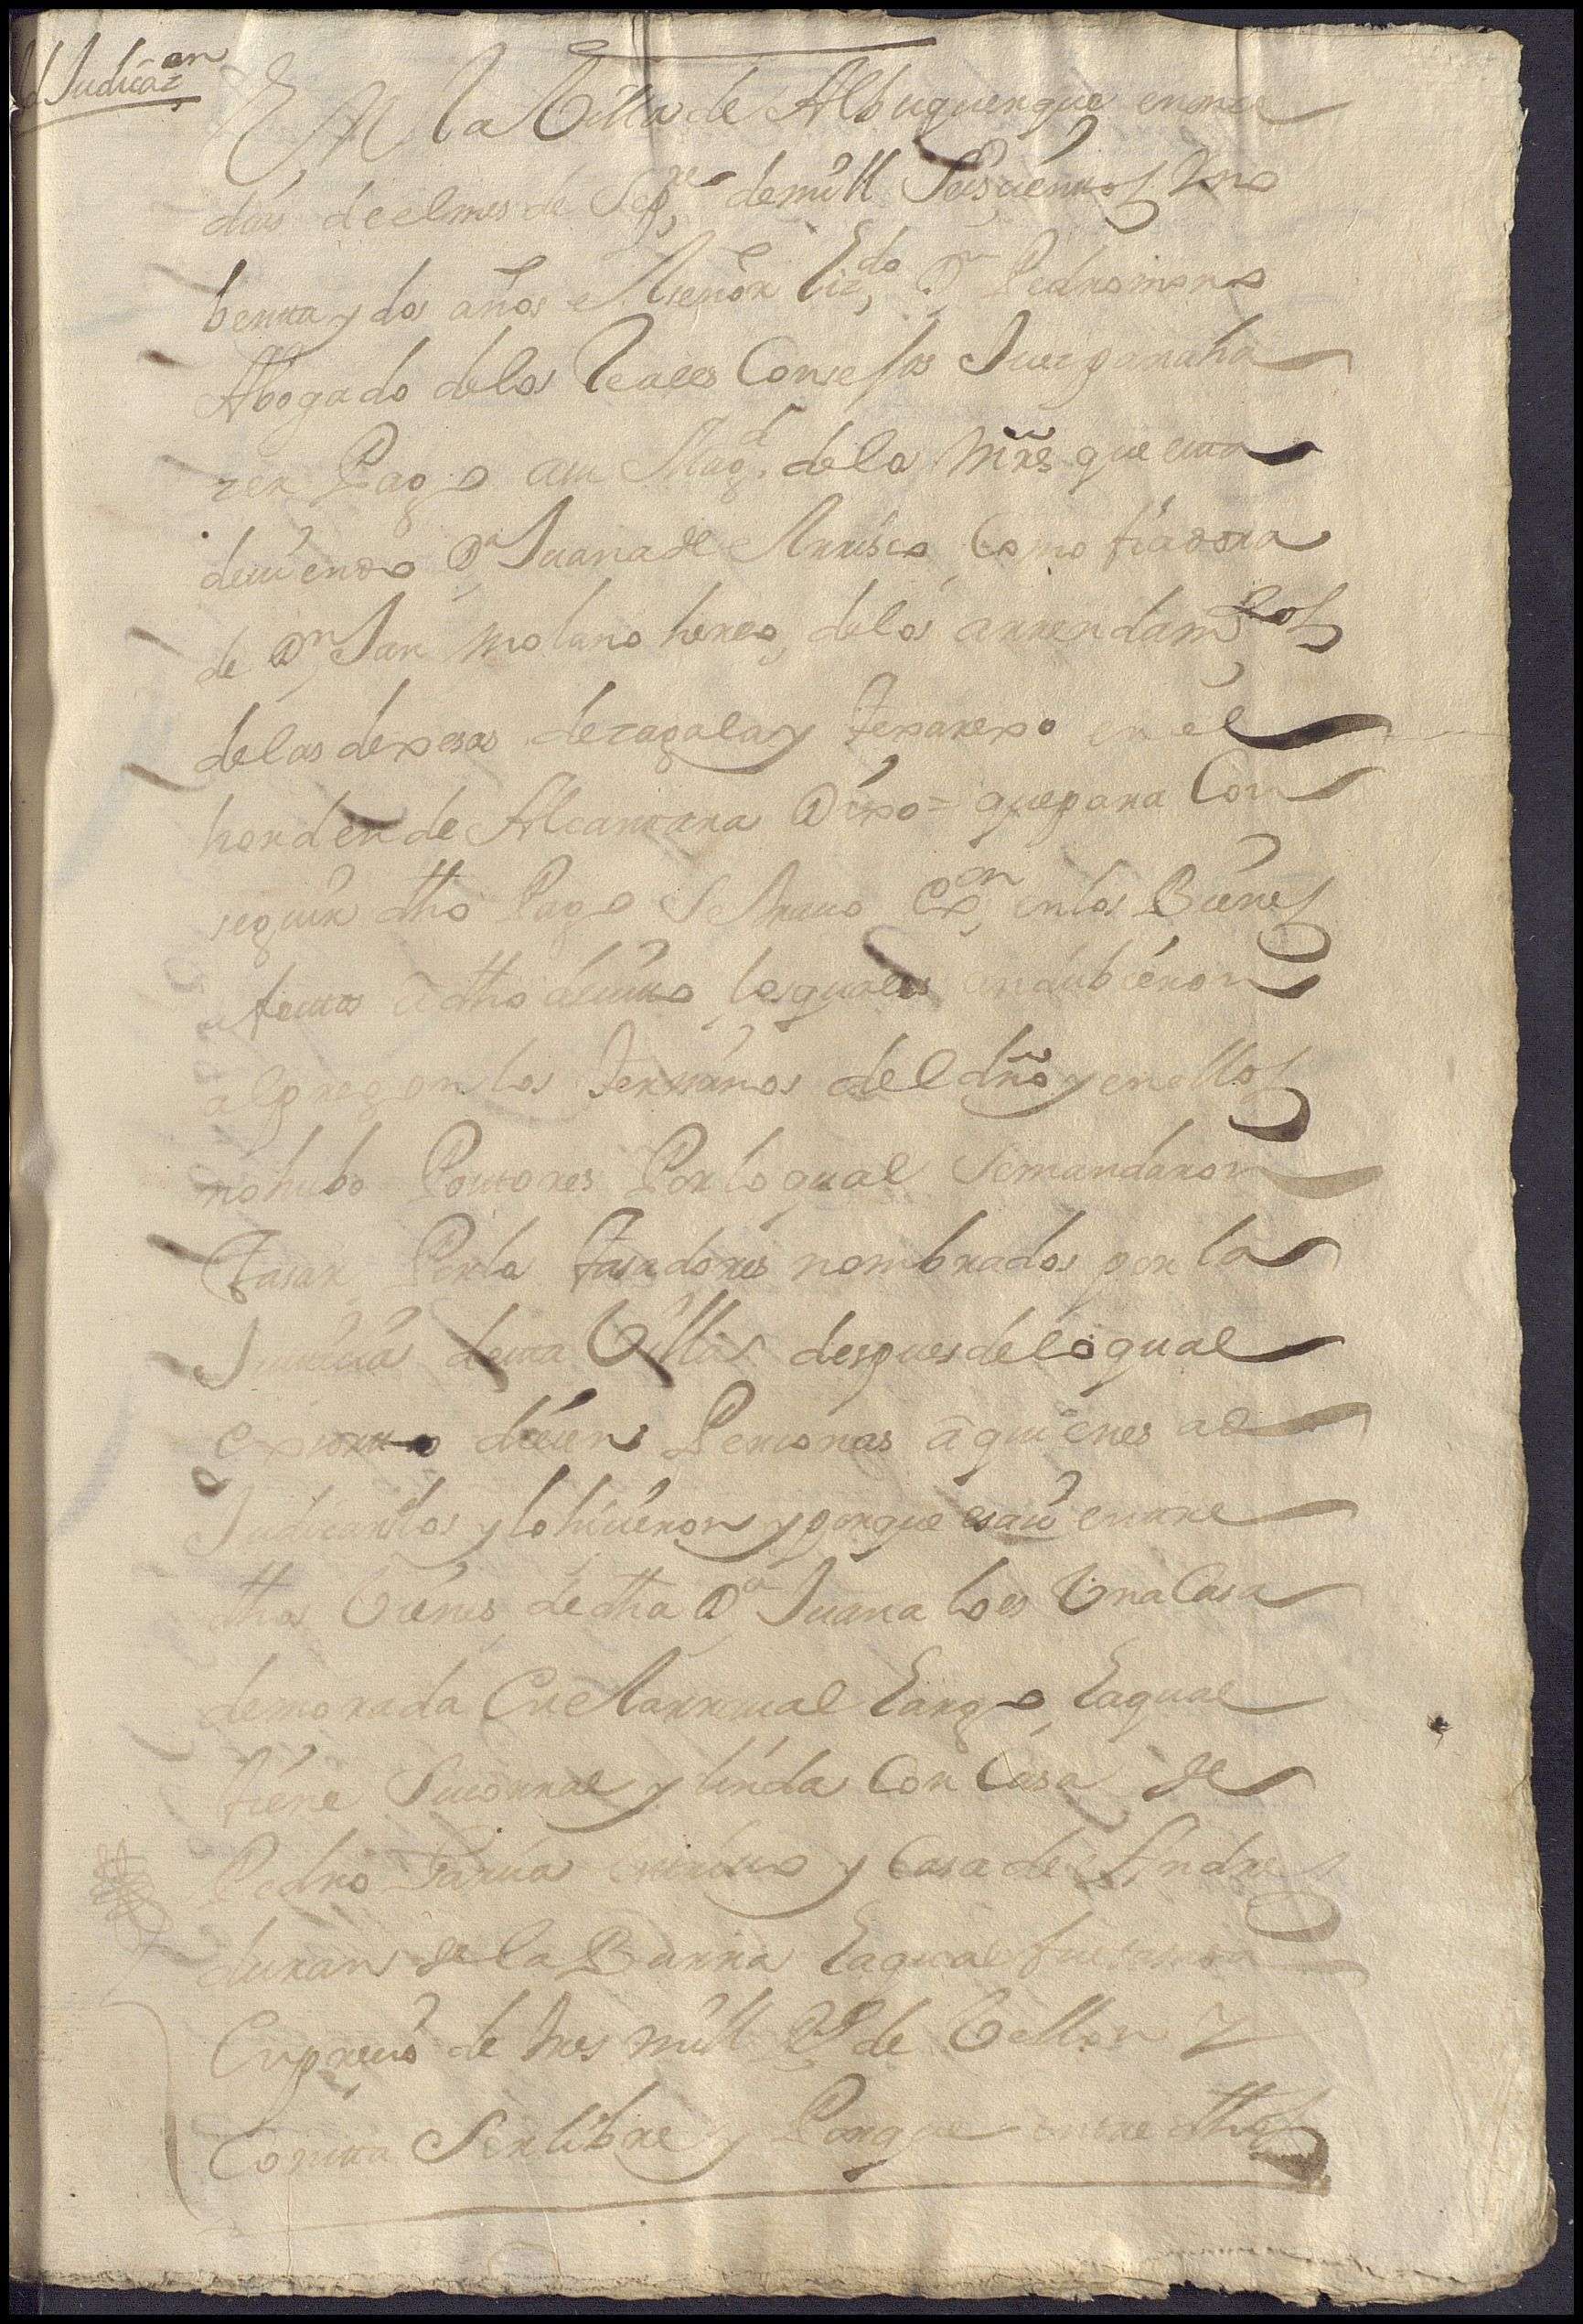 Adjudicaz.on
En la Villa de Alburquerque en onze
dias de el mes de Sep.re de mill Seiscientos y no
benta y dos años el señor Liz.do D.n Pedro moreno
Abogado de los Reales Consejos Juez para ha
zer Pago a su Mag.d de los mrs que esta
deviendo D.a Juana de Arrisco Como fiadora
de D.n Jan molano de los arrendam.tos
de las dexesas de zagala y en el
horden de Alcantara Dixo = que para Con
seguir dho Pago Se trauo ex.on en los Bienes
afectos a dho devito los quales andubieron
al pregon los terminos del dro y en ellos
no hubo Postores Por lo qual se mandaron
tasar Por los tasadores nombrados por la
Justicia desta Villa despues de lo qual
exsorto diesen Personas a quienes ad
Judicarlos y lo hicieron y porque entre
dhos bienes de dha D.a Juana lo es Una Casa
de morada En el Largo La qual
tiene Su corral y linda Con Casa de
Pedro Garcia y Casa de Andres
duran de la Barra La qual fue tasada
En precio de tres mill R.s de Vellon y
Consta Ser libre y Porque entre dhos